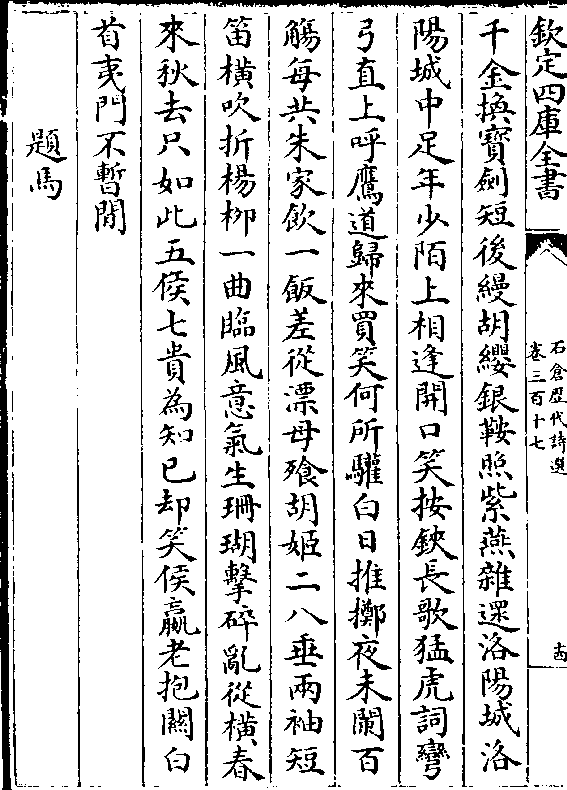 欽定四庫全書
石倉歷代詩選
卷三百十七
十四
千金換寶劍短後縵胡纓銀鞍照紫燕雜遝洛陽城洛
陽城中足年少陌上相逢開口笑按鋏長歌猛虎詞彎
弓直上呼鷹道歸來買笑何所驩白日推擲夜未闌百
觴每共朱家飲一飯差從漂母飱胡姬二八垂兩袖短
笛橫吹折楊柳一曲臨風意氣生珊瑚擊碎亂從橫春
來秋去只如此五侯七貴為知已却笑侯嬴老抱關白
首夷門不暫閒
題馬